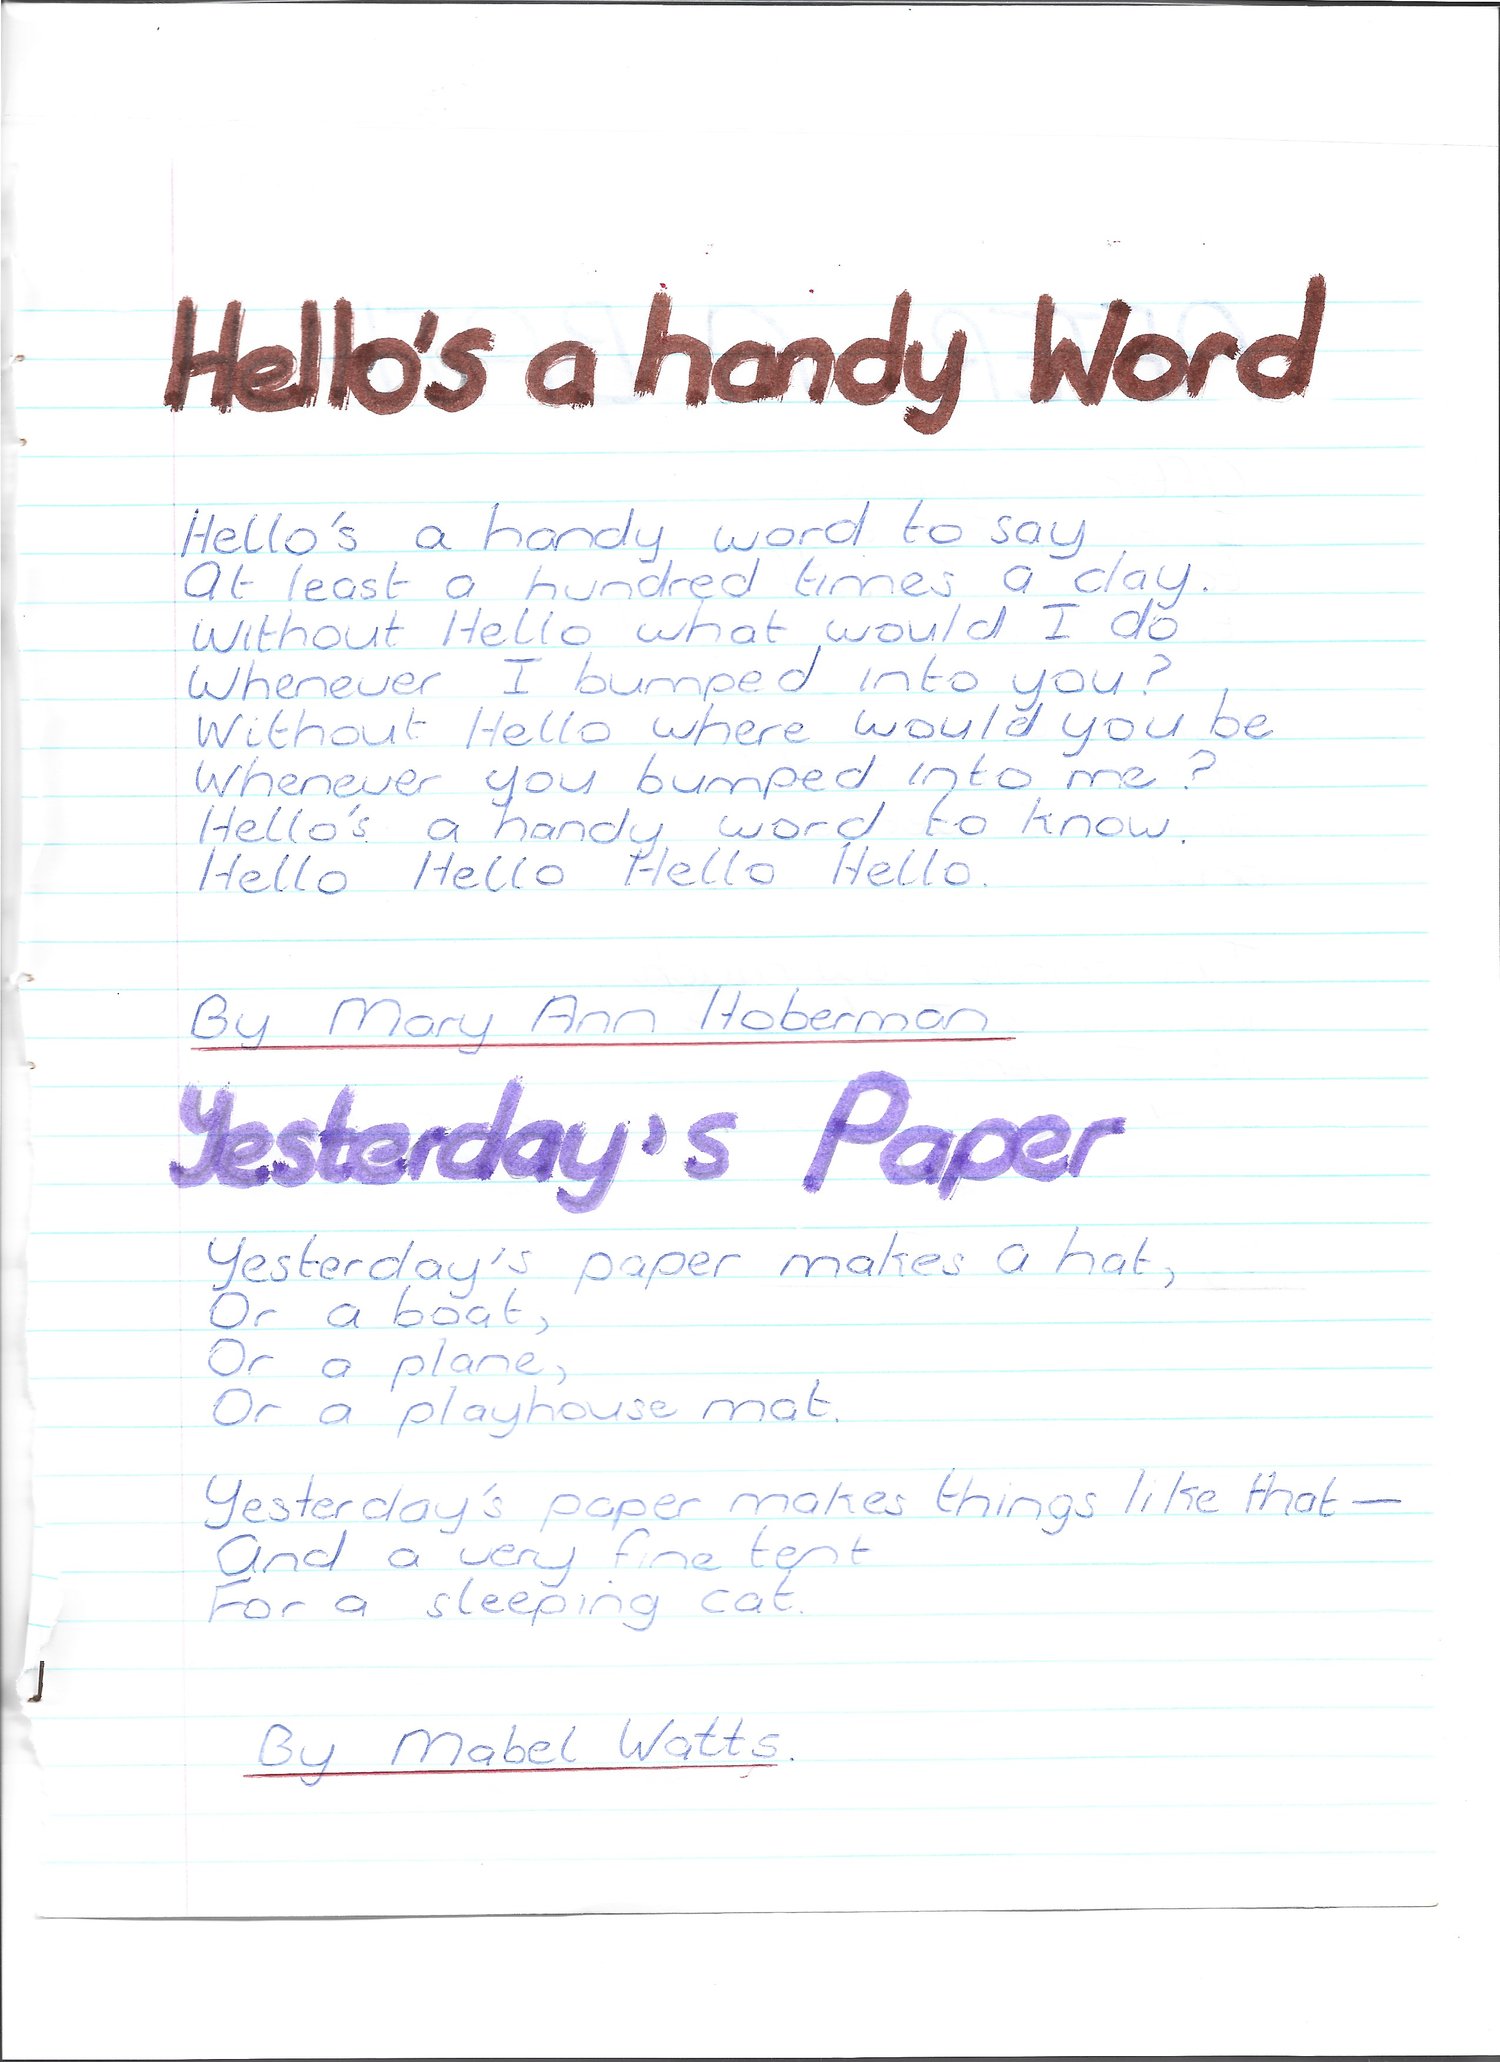 Hello's a handy Word
Hello's a handy word to say
At least a hundred times a day.
Without Hello what would I do
Whenever I bumped into you?
Without Hello where would you be
Whenever you bumped into me?
Hello's a handy word to know.
Hello Hello Hello Hello.
By Mary Ann Hoberman
Yesterday's Paper
Yesterday's paper makes a hat,
Or a boat,
Or a plane,
Or a playhouse mat.
Yesterday's paper makes things like that—
And a very fine tent
For a sleeping cat.
By Mabel Watts.